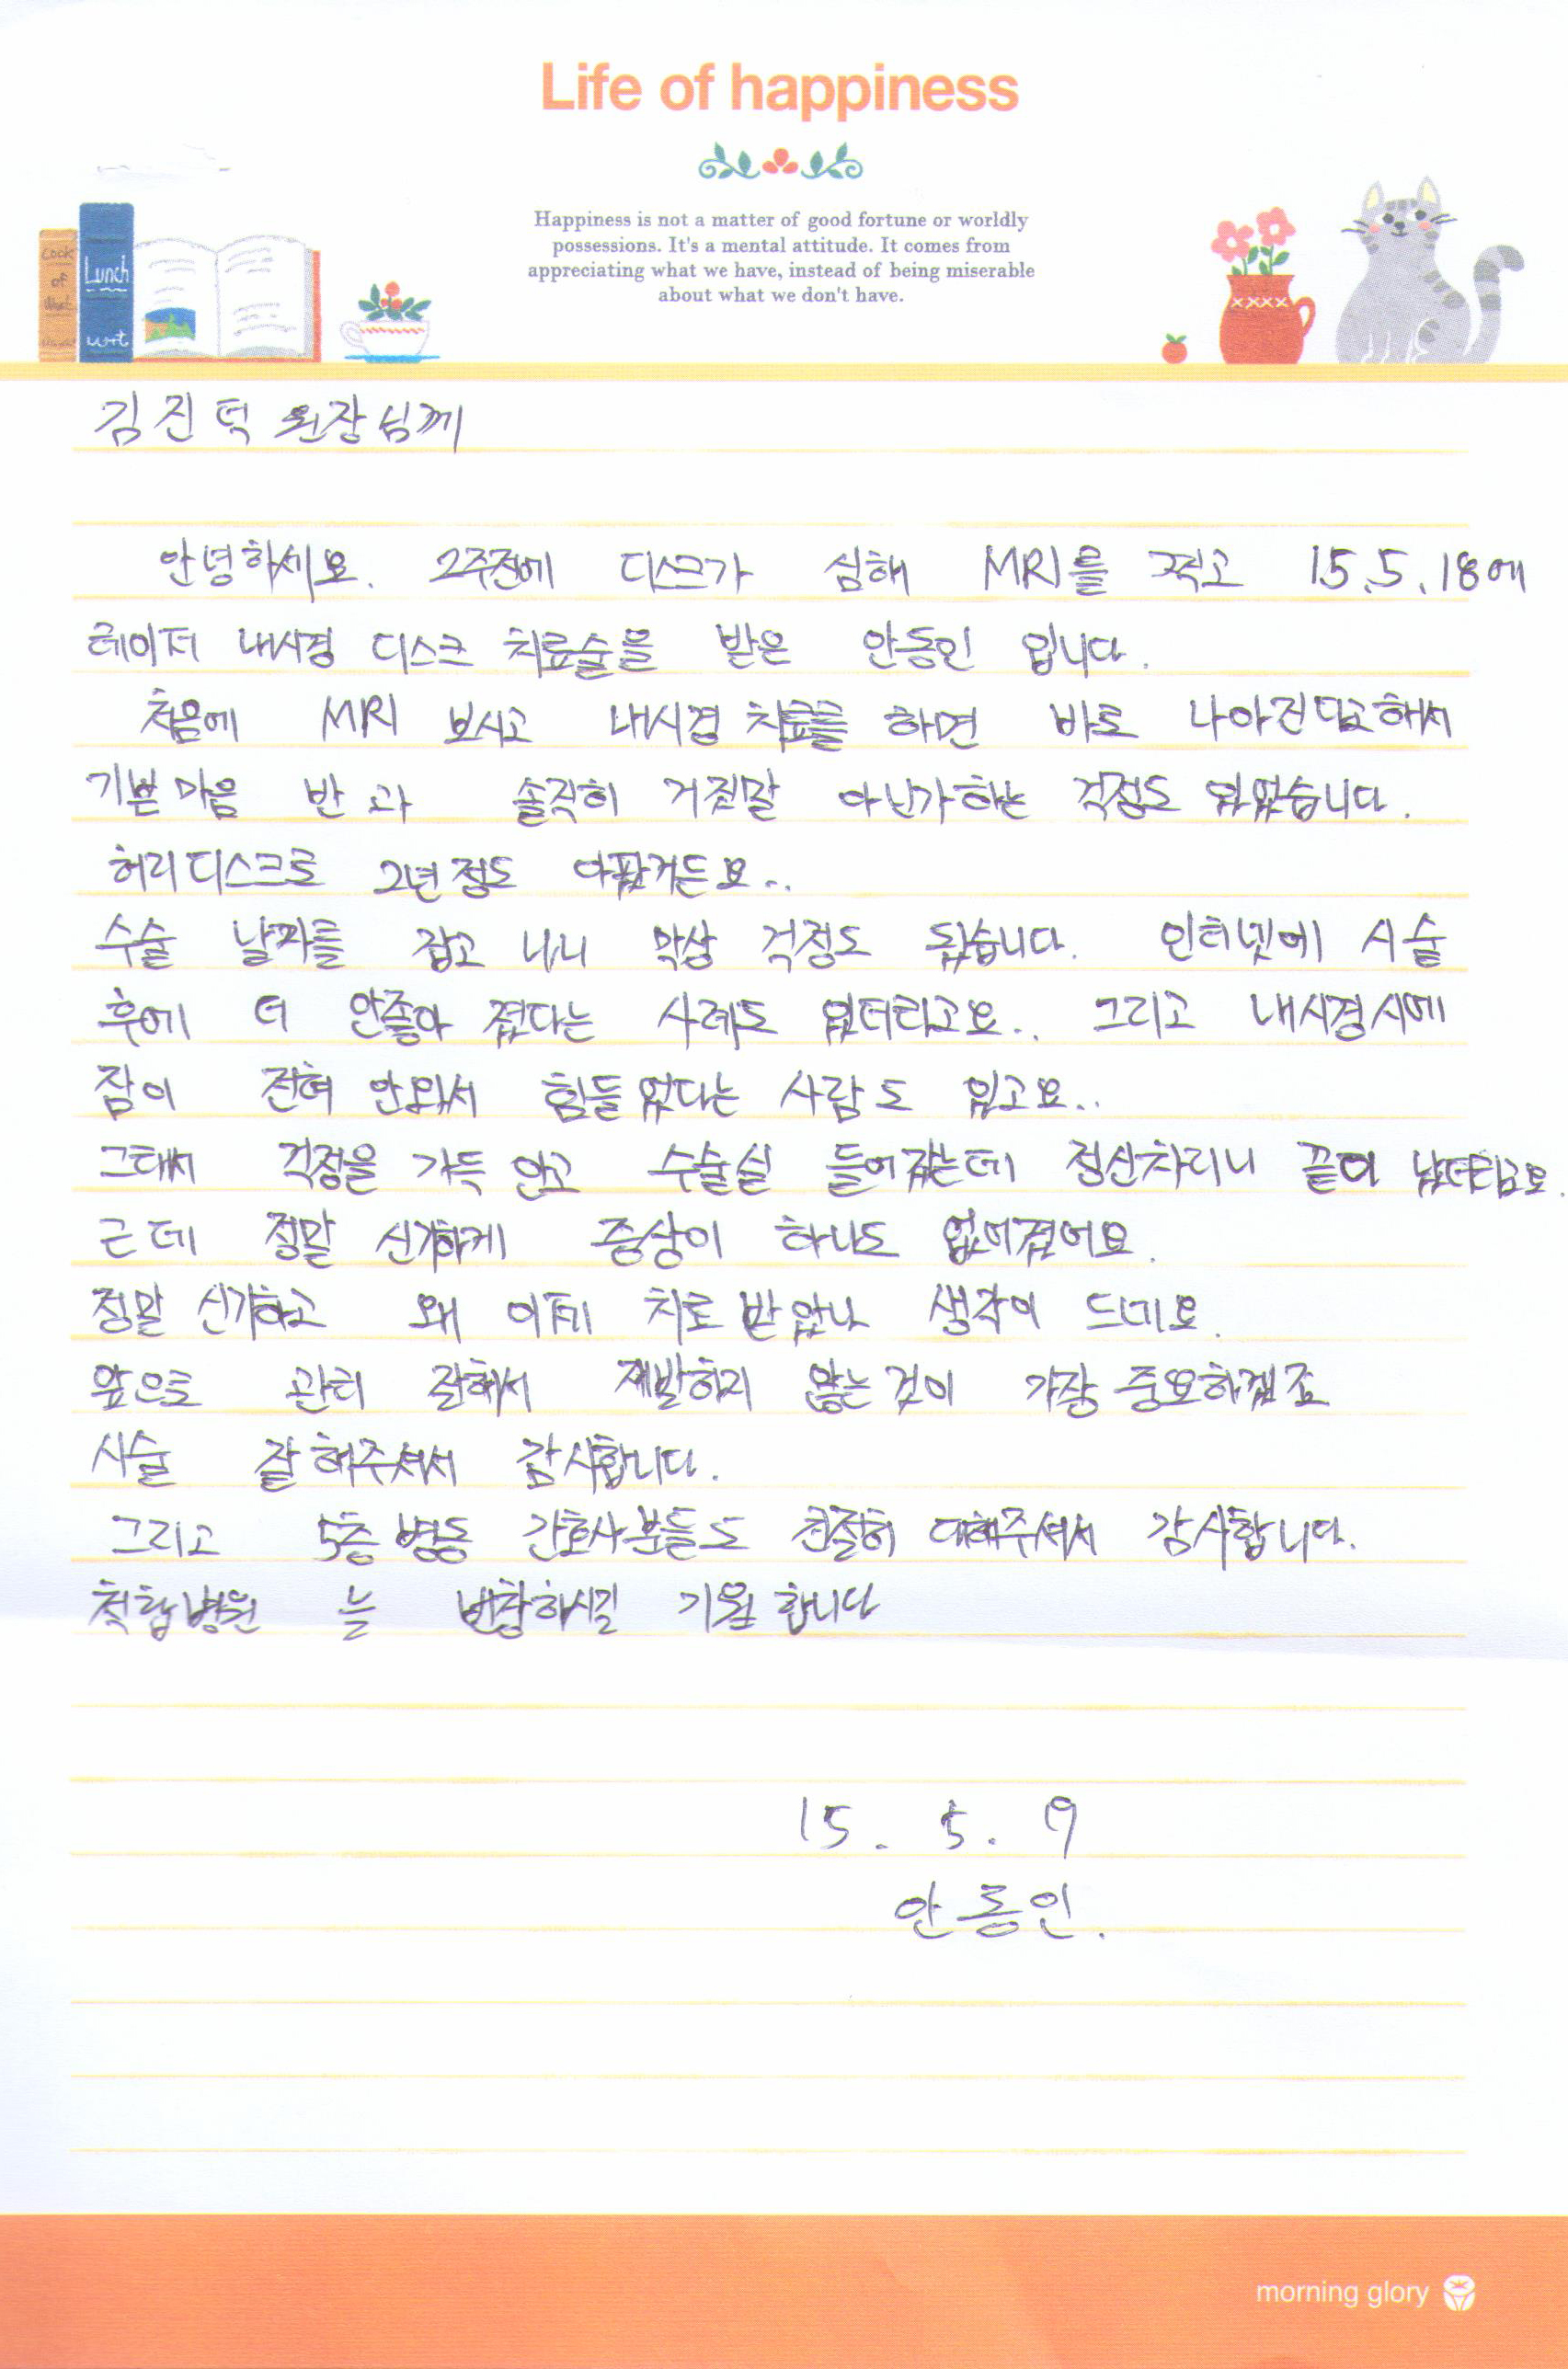 Life of happiness
Happiness is not a matter of good fortune or worldly
possessions. It's a mental attitude. It comes from
appreciating what we have, instead of being miserable
about what we don't have.
Lunch
김진덕 원장님께
안녕하세요. 2주전에 디스크가 심해 MRI를 찍고 15.5.18에
레이저 내시경 디스크 치료술을 받은 안동인 입니다.
처음에 MRI 보시고 내시경 치료를 하면 바로 나아진다고해서
기쁜마음 반과 솔직히 거짓말 아닌가하는 걱정도 있었습니다.
허리디스크로 2년정도 아팠거든요..
수술 날짜를 잡고 나니 막상 걱정도 됬습니다. 인터넷에 시술
후에 더 안좋아 졌다는 사례도 있더라고요.. 그리고 내시경시에
잠이 전혀 안와서 힘들었다는 사람도 있고요..
그래서 걱정을 가득 안고 수술실 들어갔는데 정신차리니 끝이 났더라고요.
근데 정말 신기하게 증상이 하나도 없어졌어요.
정말 신기하고 왜 이제 치료 받았나 생각이 드네요.
앞으로 관리 잘해서 재발하지 않는것이 가장 중요하겠죠
시술 잘 해주셔서 감사합니다.
그리고 5층 병동 간호사분들도 친절히 대해주셔서 감사합니다.
척탑병원 늘 번창하시길 기원 합니다
15. 5. 9
안동인.
morning glory